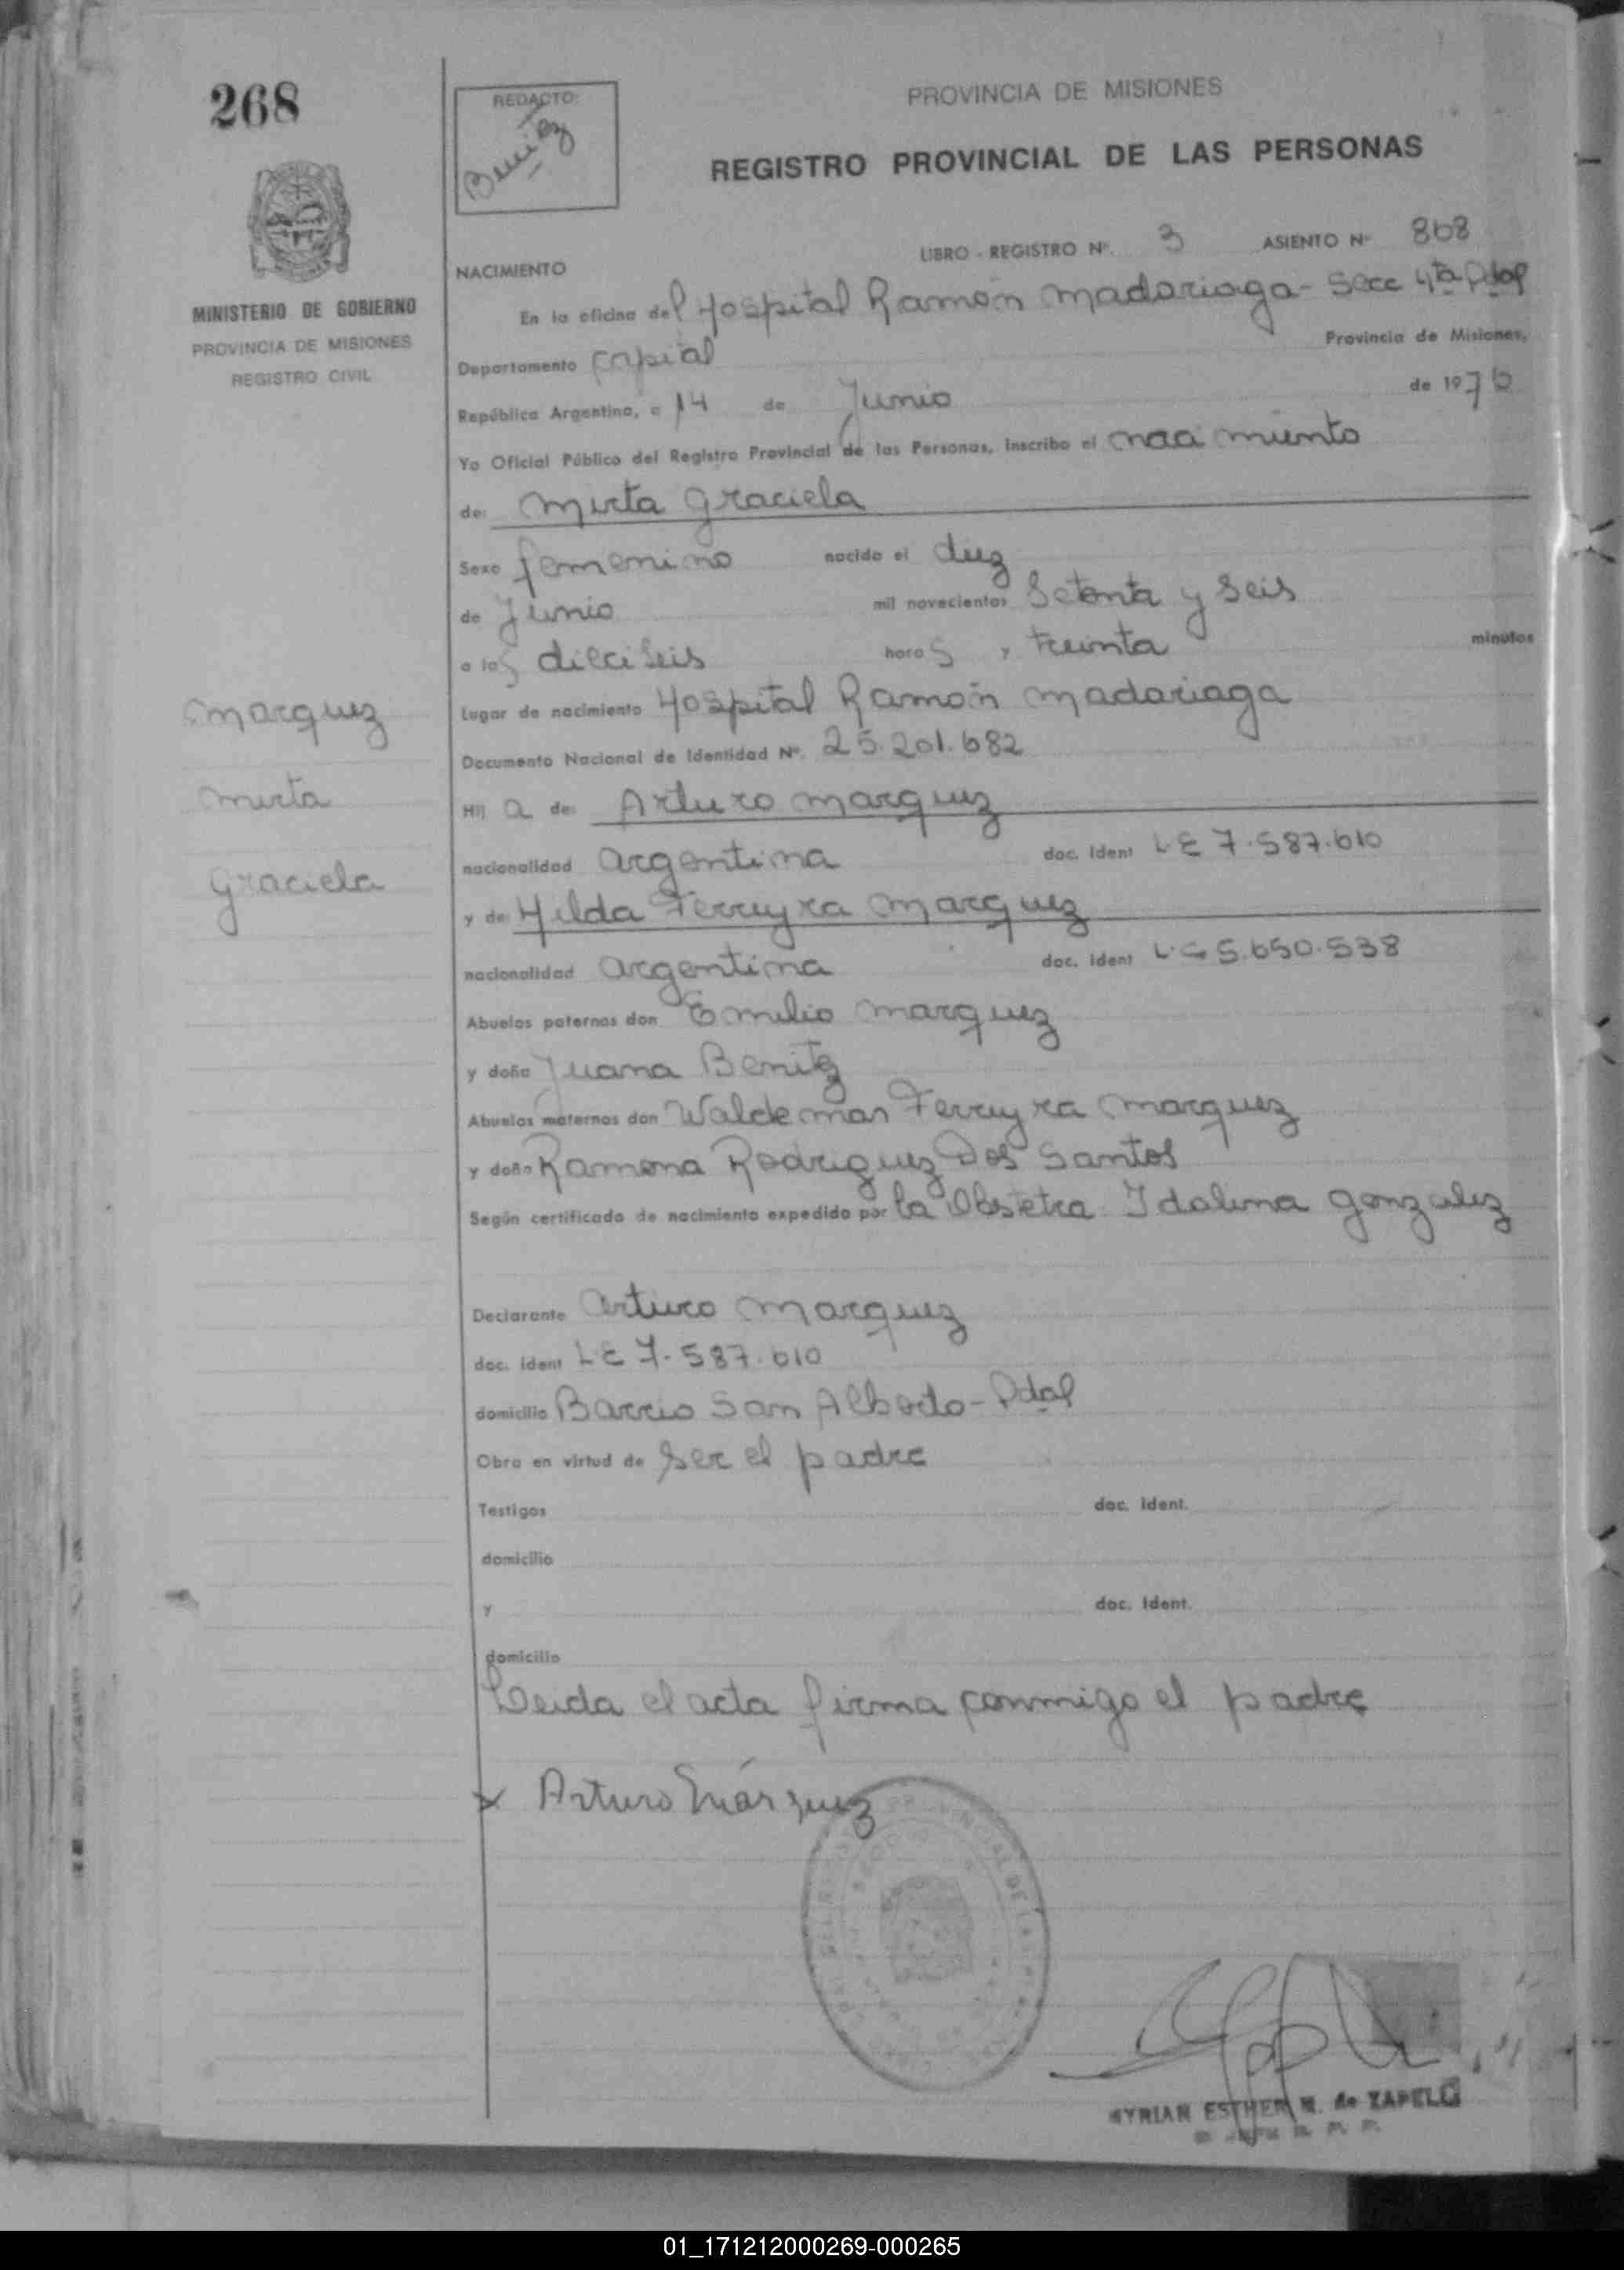 268
REDACTO:
Benitez
PROVINCIA DE MISIONES
REGISTRO PROVINCIAL DE LAS PERSONAS
LIBRO - REGISTRO Nº. 3 ASIENTO Nº 868
NACIMIENTO
MINISTERIO DE GOBIERNO
PROVINCIA DE MISIONES
REGISTRO CIVIL
En la oficina del Hospital Ramón Madariaga - Secc 4ta Pdas
Departamento Capital Provincia de Misiones,
República Argentina, a 14 de Junio de 1976
Yo Oficial Público del Registro Provincial de las Personas, inscribo el nacimiento
de: Mirta Graciela
Sexo femenino nacido el diez
de Junio mil novecientos Setenta y Seis
a las dieciseis horas y treinta minutos
Lugar de nacimiento Hospital Ramón Madariaga
Documento Nacional de Identidad Nº. 25.201.682
Marquez
Mirta
Graciela
Hij a de: Arturo Marquez
nacionalidad argentina doc. ident L E 7.587.610
y de Hilda Ferreyra Marquez
nacionalidad argentina doc. ident L C 5.650.538
Abuelos paternos don Emilio Marquez
y doña Juana Benitez
Abuelos maternos don Waldemar Ferreyra Marquez
y doña Ramona Rodriguez Dos Santos
Según certificado de nacimiento expedido por la Obstetra Idalina Gonzalez
Declarante Arturo Marquez
doc. ident L E 7.587.610
domicilio Barrio San Alberto - Pdas
Obra en virtud de ser el padre
Testigos doc. ident.
domicilio
y doc. ident.
domicilio
Leida el acta firma conmigo el padre
x Arturo Márquez
PROVINCIAL DE LAS
MYRIAN ESTHER M. de ZAPELO
01_171212000269-000265